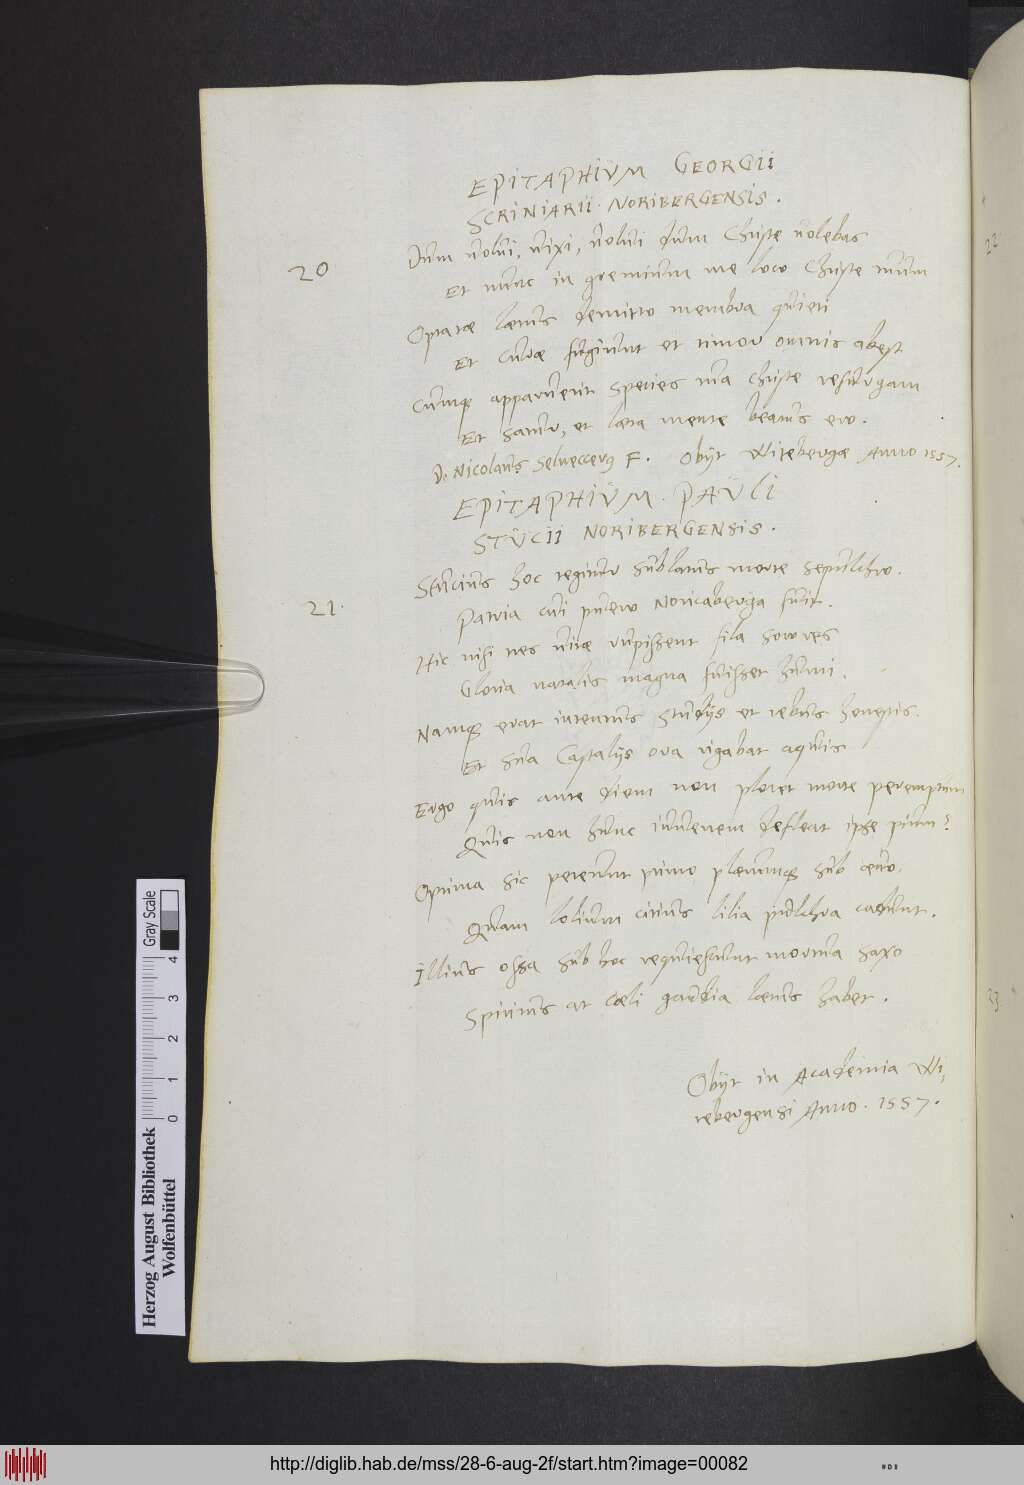 EPITAPHIVM GEORGII
SCRINIARII NORIBERGENSIS.
20
Dum volui, vixi, volui dum Christe volebas
Et nunc in gremium me loco Christe tuum
Optatae laetus demitto membra quieti
Et Curae fugiunt et timor omnis abest
Cumq apparuerit species tua Christe resurgam
Et Satur, et laeta mente beatus ero.
D. Nicolaus Selneccerg F. Obijt Witebergae Anno 1557.
EPITAPHIVM. PAVLI
STVCII NORIBERGENSIS.
21.
Stucius hoc tegitur sublatus morte sepulchro.
Patria cui puero Noricaberga fuit.
Hic nisi tres vitae rupissent fila sorores
Gloria natalis magna fuisset humi.
Namq erat intentus Studijs et rebus honestis.
Et sua Castalijs ora rigabat aquis
Ergo quis ante diem non ploret morte peremptum
Quis non hunc iuuenem defleat ipse pium?
Optima sic pereunt primo plerumq sub aeuo.
Quam lolium citius lilia pulchra cadunt.
Illius ossa sub hoc requiescunt mortua saxo
Spiritus at caeli gaudia laetus habet.
Obijt in Academia Wi,
tebergensi Anno. 1557.
22
23
Herzog August Bibliothek
Wolfenbüttel
0 1 2 3 4
Gray Scale
http://diglib.hab.de/mss/28-6-aug-2f/start.htm?image=00082